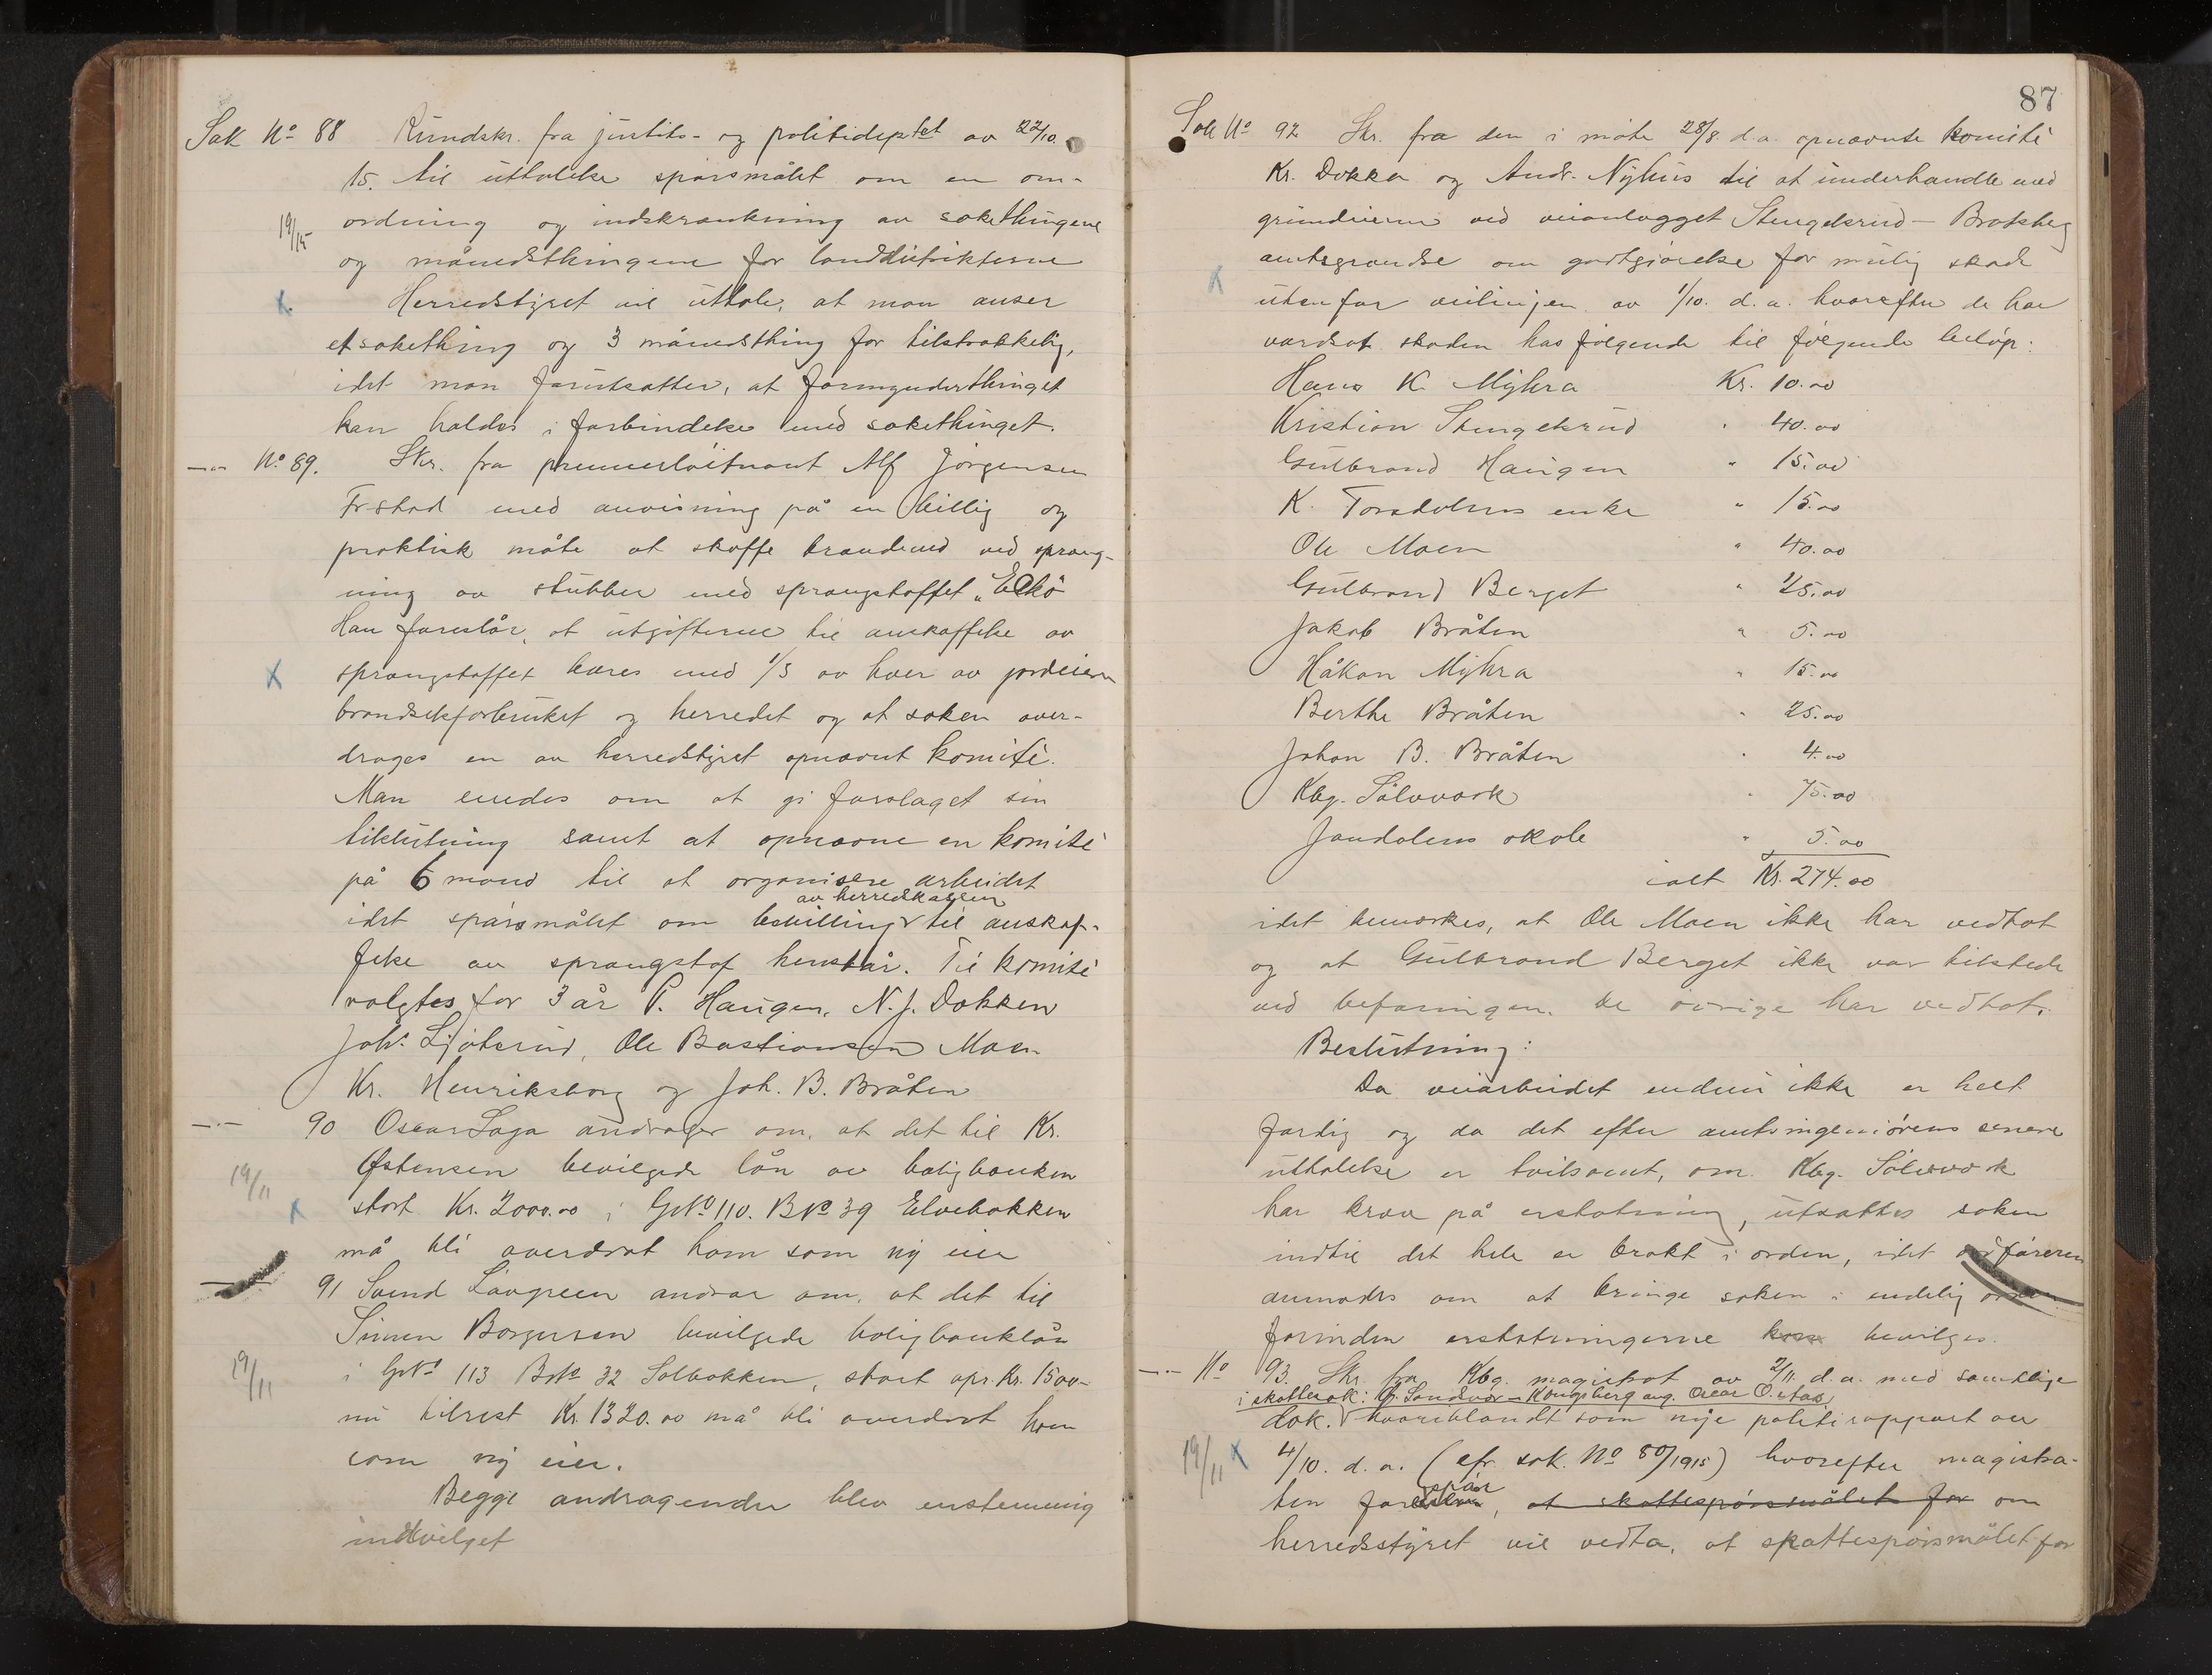 Sak No 88 Rundskr. fra justits- og politideptet av 22/10.
15. til uttalelse spørsmålet om en om-
19/15 ordning og indskrænkning av sakethingene
og månedsthingene for landdistrikterne
x. Herredstyret vil uttale, at man anser
et sakething og 3 månedsthing for tilstrækkelig,
idet man forutsætter, at formynderthinget
kan holdes i forbindelse med sakethinget.
—"— No 89. Skr. fra premierløitnant Alf Jørgensen
Fr-stad med anvisning på en billig og
praktisk måte at skaffe brændeved ved spræng-
ning av stubber med sprængstoffet "
Han foreslår, at utgifterne til anskaffelse av
x sprængstoffet bæres med 1/3 av hver av jordeieren
brændselsforbruket og herredet og at saken over-
drages en av herredstyret opnævnt komité.
Man enedes om at gi forslaget sin
tilslutning samt at opnævne en komité
på 6 mand til at organisere arbeidet
av herredskassen
idet spørsmålet om bevilling til anskaf-
felse av sprængstof henstår. Til komité
valgtes for 3 år P. Haugen, N. J. Dokken
Johs. Ljøterud, Ole Bastiansen Moen
Kr. Henriksborg og Joh. B. Bråten
—"— 90 Oscar Saga andrager om, at det til Kr.
19/11 Østensen bevilgede lån av boligbanken
x stort Kr. 2000.00 i GNo 110. BNo 39 Elvebakken
må bli overdrat ham som ny eier
— 91 Svend Løvgreen andrar om, at det til
Simen Borgersen bevilgede boligbanklån
19/11 i GNo 113 BNo 32 Solbakken, stort opr. Kr. 1500-
nu tilrest Kr. 1320.00 må bli overdrat ham
som ny eier.
Begge andragender blev enstemmig
indvilget
87
Sak No 92 Skr. fra den i møte 28/8. d.a. opnævnte komité
Kr. Dokka og Andr. Nyhus til at underhandle med
grundeierne ved veianlægget Stengelsrud – Bratsberg
amtsgrændse om godtgjørelse for mulig skade
x utenfor veilinjen av 1/10. d.a. hvorefter de har
værdsat skaden hos følgende til følgende beløp:
Hans K. Myhra Kr. 10.00
Kristian Stengelsrud " 40.00
Gulbrand Haugen " 15.00
K. Torsdalens enke " 15.00
Ole Moen " 40.00
Gulbrand Berget " 25.00
Jakob Bråten " 5.00
Håkon Myhra " 15.00
Berthe Bråten " 25.00
Johan B. Bråten " 4.00
Kbg. Sølvværk " 75.00
Jondalens skole " 5.00
ialt Kr. 274.00
idet bemærkes, at Ole Moen ikke har vedtat
og at Gulbrand Berget ikke var tilstede
ved befaringen. De øvrige har vedtat.
Beslutning:
Da veiarbeidet endnu ikke er helt
færdig og da det efter amtsingeniørens senere
uttalelse er tvilsomt, om Kbg. Sølvværk
har krav på erstatning, utsættes saken
indtil det hele er brakt i orden, idet ordføreren
anmodes om at bringe saken i endelig orden
forinden erstatningerne kan bevilges.
—"— No 93. Skr. fra Kbg. magistrat av 2/11. d.a. med samtlige
i skattesak: Sandsvær – Kongsberg ang. Oscar
dok. hvoriblandt som nye politirapport av
19/11 x 4/10. d.a. (cfr. sak. No 80/1915) hvorefter magistra-
ten forespør, at skattespørsmålet for om
herredsstyret vil vedta, at skattespørsmålet for